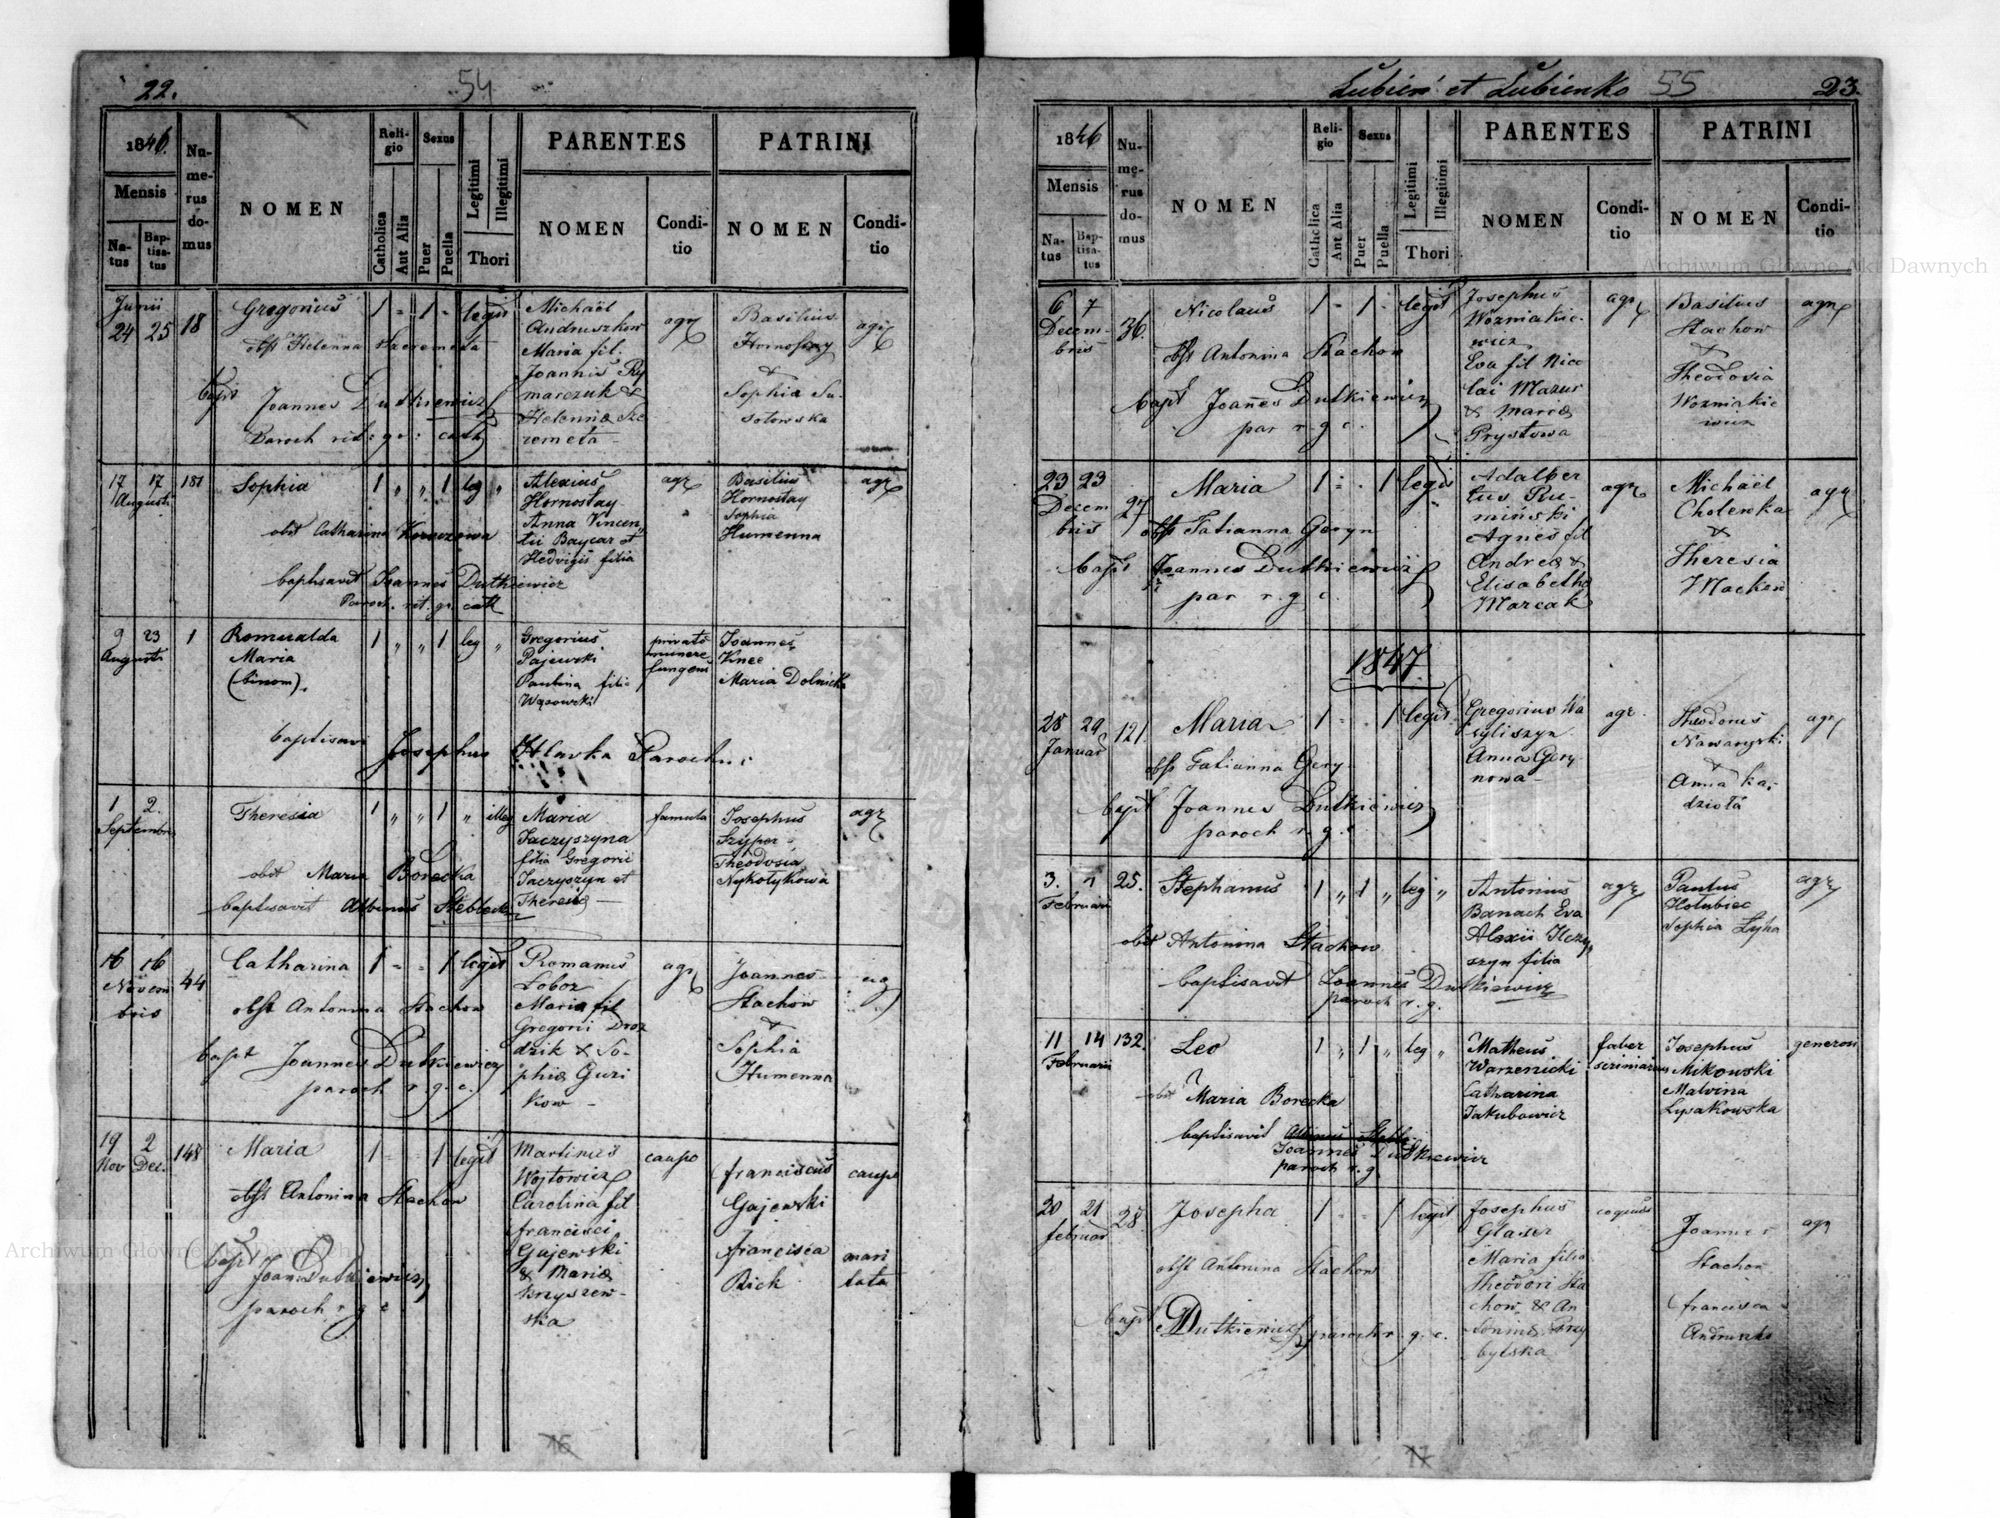 22.
54
1846.
Mensis
Na-
tus
Bap-
tisa-
tus
Nu-
me-
rus
do-
mus
NOMEN
Reli-
gio
Catholica
Aut Alia
Sexus
Puer
Puella
Legitimi
Illegitimi
Thori
PARENTES
NOMEN
Condi-
tio
PATRINI
NOMEN
Condi-
tio
Junii
24 25 18 Gregorius 1 - 1 - legit
obst Helenna Szeremeta
bapt Joannes Dutkiewicz
Paroch rit: gr: cath
Michaël
Andruszkow
Maria fil:
Joannis Ry
marczuk &
Helennæ Sze
remeta
agr
Basilius
Hornostay
&
Sophia Su-
sotowska
agr
17 17 181 Sophia 1 " " 1 leg "
Augusti
obst Catharina
baptisavit Joannes Dutkiewicz
Paroch. rit. gr. cath
Alexius
Hornostay
Anna Vincen
tii Baycar et
Hedvigis filia
agr
Basilius
Hornostay
Sophia
Humenna
agr
9 23 1 Romualda 1 " " 1 leg "
Augusti
Maria
(binom).
baptisavi Josephus Hlavka Parochus
Gregorius
Pajewski
Paulina filia
Wąsowski
privato
munere
fungens
Joannes
Knee
Maria Dolnicka
1 2. Theresia 1 " " 1 " illeg
Septembris
obst Maria Borecka
baptisavit Albinus
Maria
Jaczyszyna
filia Gregorii
Jaczyszyn et
Theresiæ
famula
Josephus
Szyper
Theodosia
Nykolykowa
agr
16 16 44 Catharina 1 - - 1 legit
Novem
bris
obst Antonina Stachow
bapt Joannes Dutkiewicz
paroch r. g. c.
Romanus
Loboz
Maria fil
Gregorii Droz
dzik & So-
phiæ Guri
kow
agr
Joannes
Stachow
&
Sophia
Humenna
agr
19 2 148 Maria 1 - - 1 legit
Nov Dec.
obst Antonina Stachow
bapt Joan Dutkiewicz
paroch r g c
Martinus
Wojtowicz
Carolina fil
francisci
Gajewski
& Mariæ
Krzyszew-
ska
caupo
franciscus
Gajewski
francisca
Rick
caupo
mari
tata
16
Łubien et Łubienko 55
23.
1846
Mensis
Na-
tus
Bap-
tisa-
tus
Nu-
me-
rus
do-
mus
NOMEN
Reli-
gio
Catholica
Aut Alia
Sexus
Puer
Puella
Legitimi
Illegitimi
Thori
PARENTES
NOMEN
Condi-
tio
PATRINI
NOMEN
Condi-
tio
6 7 36. Nicolaus 1 - 1 - legit
Decem-
bris
obst Antonina Stachow
bapt Joañes Dutkiewicz
par r. g c.
Josephus
Wozniakie-
wicz
Eva fil Nico
lai Mazur
& Mariæ
Prystowa
agr
Basilius
Stachow
&
Theodosia
Wozniakie
wicz
agr
23 23 27 Maria 1 - . 1 legit
Decem
bris
obst Tatianna Geryn
bapt Joannes Dutkiewicz
par r. g c.
Adalber
tus Ru-
miński
Agnes fil
Andreæ &
Elisabethæ
Marcak
agr
Michaël
Cholewka
&
Theresia
Machen
agr
1847.
28 29 121 Maria 1 - - 1 legit
Januar
obst Tatianna Gery
bapt Joannes Dutkiewicz
paroch r. g. c
Gregorius Wa
syliszyn
Anna Gery
nowa
agr.
Theodorus
Nawaryski
&
Anna ka,
dziołá
agr
3. 7 25. Stephanus 1 " 1 " leg "
Februarii
obst Antonina Stachow
baptisavit Joannes Dutkiewicz
paroch r. g.
Antonius
Banach Eva
Alexii Ilczy
szyn filia
agr
Paulus
Holubiec
Sophia Łyka
agr
11 14 132. Leo 1 " 1 " leg "
Februarii
obst Maria Borecka
baptisavit Albinus
Joannes Dutkiewicz
paroch r. g
Matheus
Warzenicki
Catharina
Jakubowicz
faber
scriniarius
Josephus
Mikowski
Malvina
Lysakowska
generosi
20 21 28 Josepha 1 - - 1 legit
februar
obst Antonina Stachow
bapt JDutkiewicz paroch r. g. c.
Josephus
Glaser
Maria filia
Theodori Sta
chow & An
toninæ Przy
bylska
coquus
Joannes
Stachow
francisca
Andruszko
agr
17
Archiwum Główne Akt Dawnych
Archiwum Główne Akt Dawnych